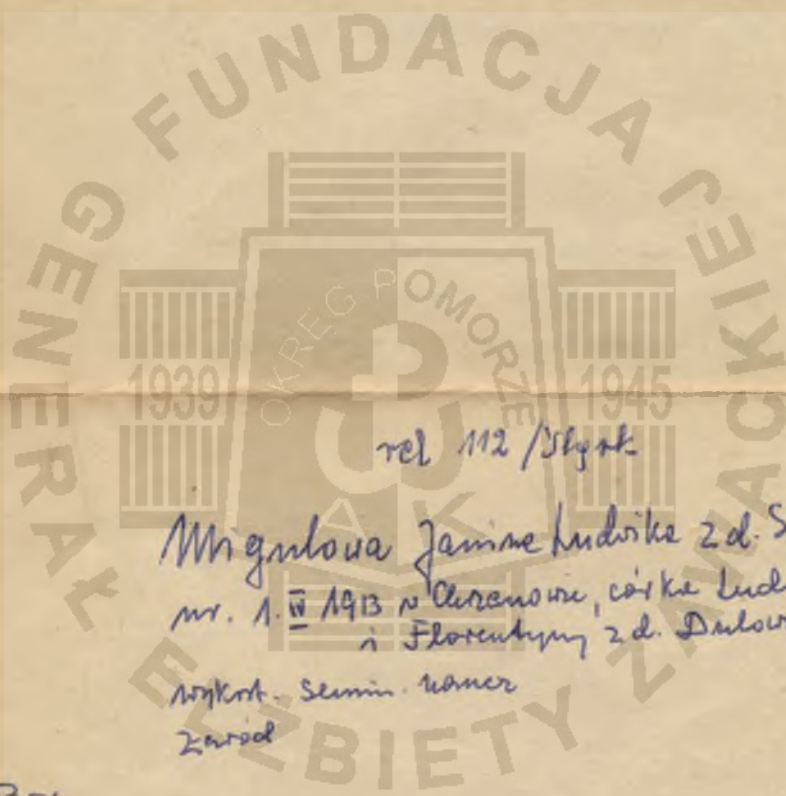 FUNDACJA JE
GENERAŁ ELŻBIETY ZAWACKIEJ
OKRĘG POMORZE
1939 1945
AK
rel 112 /
Migulowa Janina Ludwika z d. S
ur. 1. IV 1913 w Chrzanowie, córka Lud
i Florentyny z d. Dulow
wykszt. semin. naucz
zawód